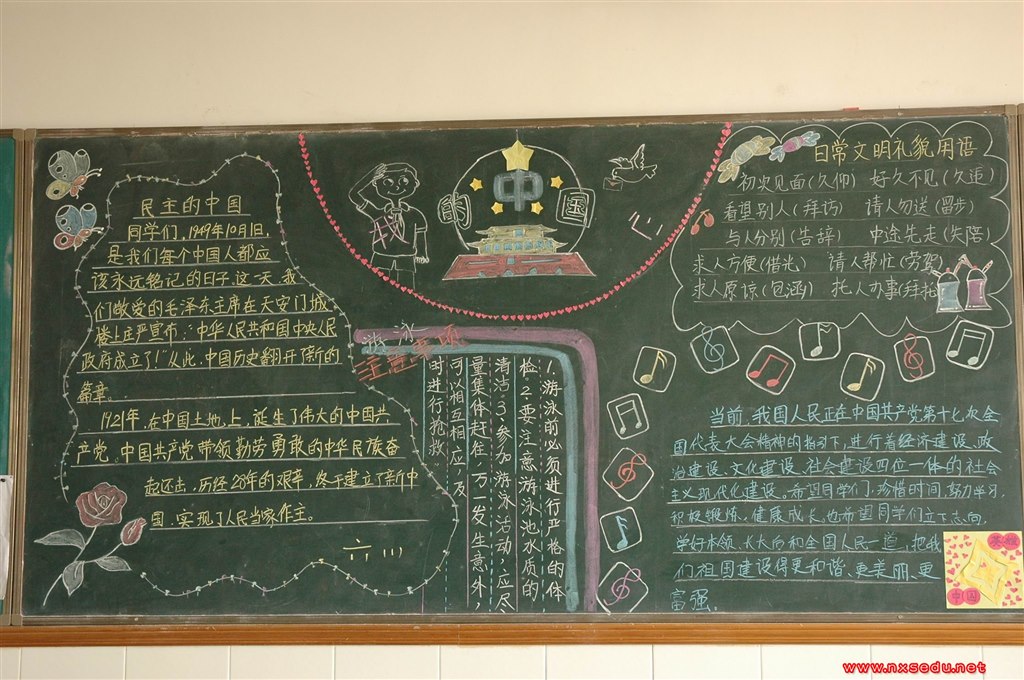 民主的中国
同学们，1949年10月1日，
是我们每个中国人都应
该永远铭记的日子，这一天，我
们敬爱的毛泽东主席在天安门城
楼上庄严宣布："中华人民共和国中央人民
政府成立了！"从此，中国历史翻开了新的
篇章。
1921年，在中国土地上，诞生了伟大的中国共
产党，中国共产党带领勤劳勇敢的中华民族奋
起还击，历经28年的艰辛，终于建立了新中
国，实现了人民当家作主。
六（1）
的 中 国
游泳
注意事项
1.游泳前必须进行严格的体
检。2.要注意游泳池水质的
清洁。3.参加游泳活动，应尽
量集体赶往，万一发生意外，
可以相互相应，及
时进行抢救。
日常文明礼貌用语
初次见面（久仰） 好久不见（久违）
看望别人（拜访） 请人勿送（留步）
与人分别（告辞） 中途先走（失陪）
求人方便（借光） 请人帮忙（劳驾）
求人原谅（包涵） 托人办事（拜托）
当前，我国人民正在中国共产党第十七次全
国代表大会精神的指引下，进行着经济建设、政
治建设、文化建设、社会建设四位一体的社会
主义现代化建设。希望同学们，珍惜时间，努力学习，
积极锻炼，健康成长。也希望同学们立下志向，
学好本领，长大后和全国人民一道，把我
们祖国建设得更和谐、更美丽、更
富强。
中国
www.nxsedu.net